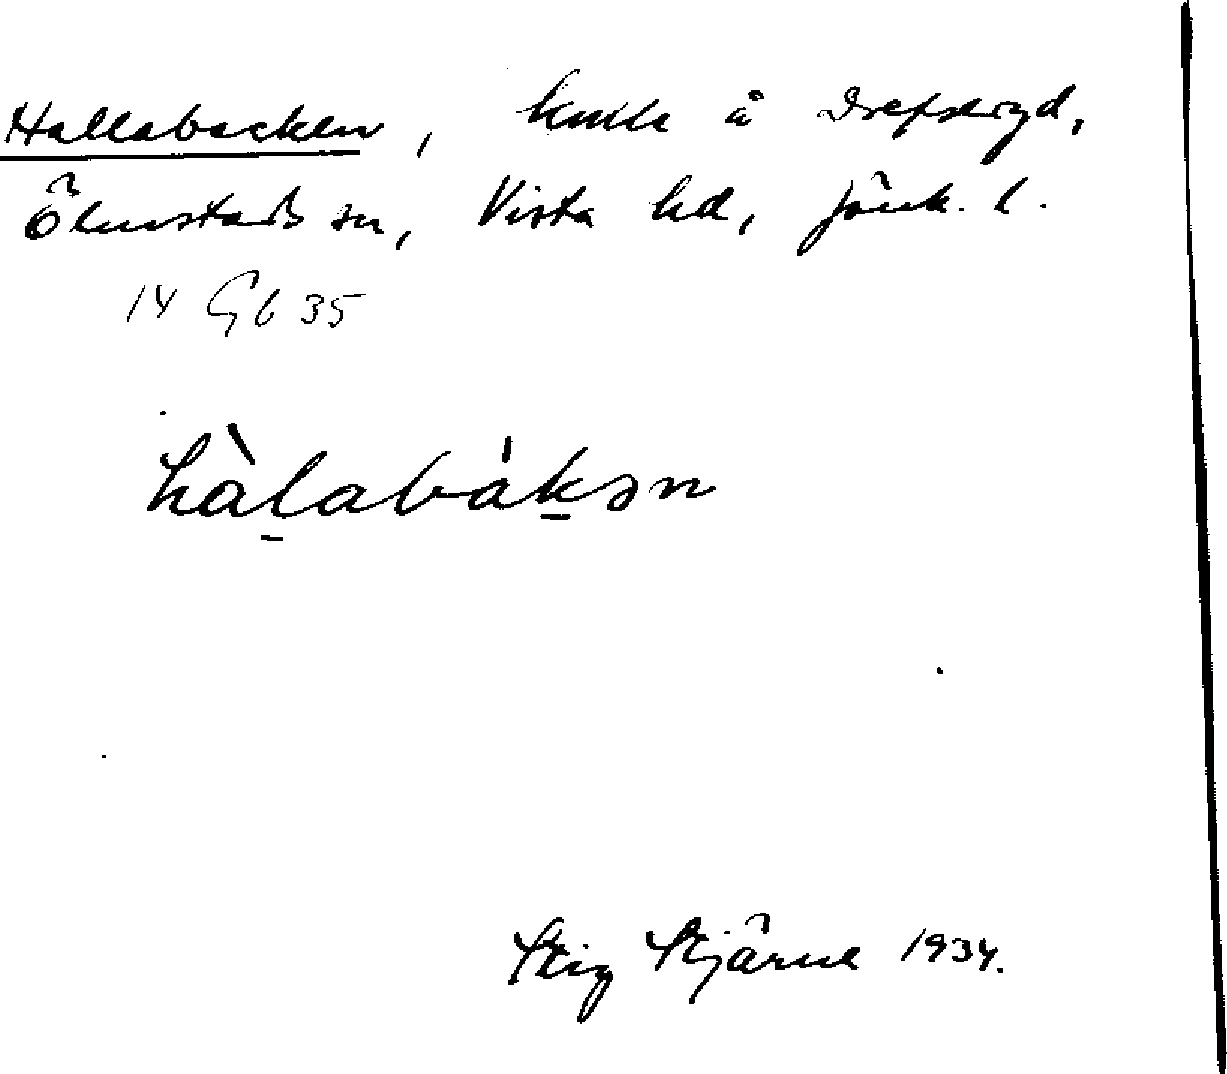 Hallabacken, kulle å Drefseryd,
Ölmstads sn, Vista hd, Jönk. l.
14 Gb 35
hàlabákən
Stig Stjärne 1934.